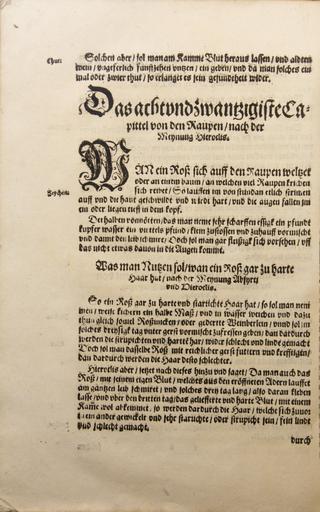 Chur.
Solchen aber / sol man am Kamme Blut heraus lassen / vnd alden
wein / vngeferlich fünffzehen vntzen / ein geben / vnd da man solches ein
mal oder zwier thut / so erlanget es sein gesundtheit wider.
Das acht vnd zwantzigiste Ca-
pittel von den Raupen / nach der
Meynung Hieroclis.
WAN ein Roß sich auff den Raupen weltzet
oder an einem baum / an welchen viel Raupen kriechen
sich reibet / So lauffen im von stundan etlich striemen
Zeychen.
auff vnd die haut geschwildt vnd wirdt hart / vnd die augen fallen im
ein oder liegen tieff in dem kopf.
Derhalben vonnöten / das man neme sehr scharffen essigk ein pfundt
kupfer wasser ein virttels pfundt / klein zustossen vnd zuhauff vormischt
vnd damit den leib schmire / Doch sol man gar fleissigk sich vorsehen / vff
das nicht etwas dauon in die Augen kommt.
Was man Nutzen sol / wan ein Roß gar zu harte
Haar hat / nach der Meynung Absyrti
vnd Hieroclis.
So ein Roß gar zu harte vnd starrichte Haar hat / so sol man nem
men / weitz kichern ein halbe Maß / vnd in wasser weichen vnd dazu
thun gleich souiel
solchs dreyssig tag vnter gerst vormischt zufressen geben / dan dardurch
werden die struplichten vnd harte Haar / wider schlecht vnd linde gemacht
Doch sol man dasselbe Roß mit reichlicher gerst futtern vnd
dan dardurch werden die Haar desto schlechter.
Hierocles aber / setzet noch dieses hinzu vnd saget / Da man auch das
Roß / mit seinem eigen Blut / welches aus den eröffneten Adern lauffet
am gantzen leib schmiret / vnd solches drey tag lang / also daran kleben
lasse / vnd vber den dritten tag / das geliefferte vnd harte Blut / mit einem
Kamme wol abkemmet / so werden dardurch die Haar / welche sich zuuor
in ein ander gewickelt vnd sehr starrichte / oder strupicht sein / fein linde
vnd schlecht gemacht.
durch